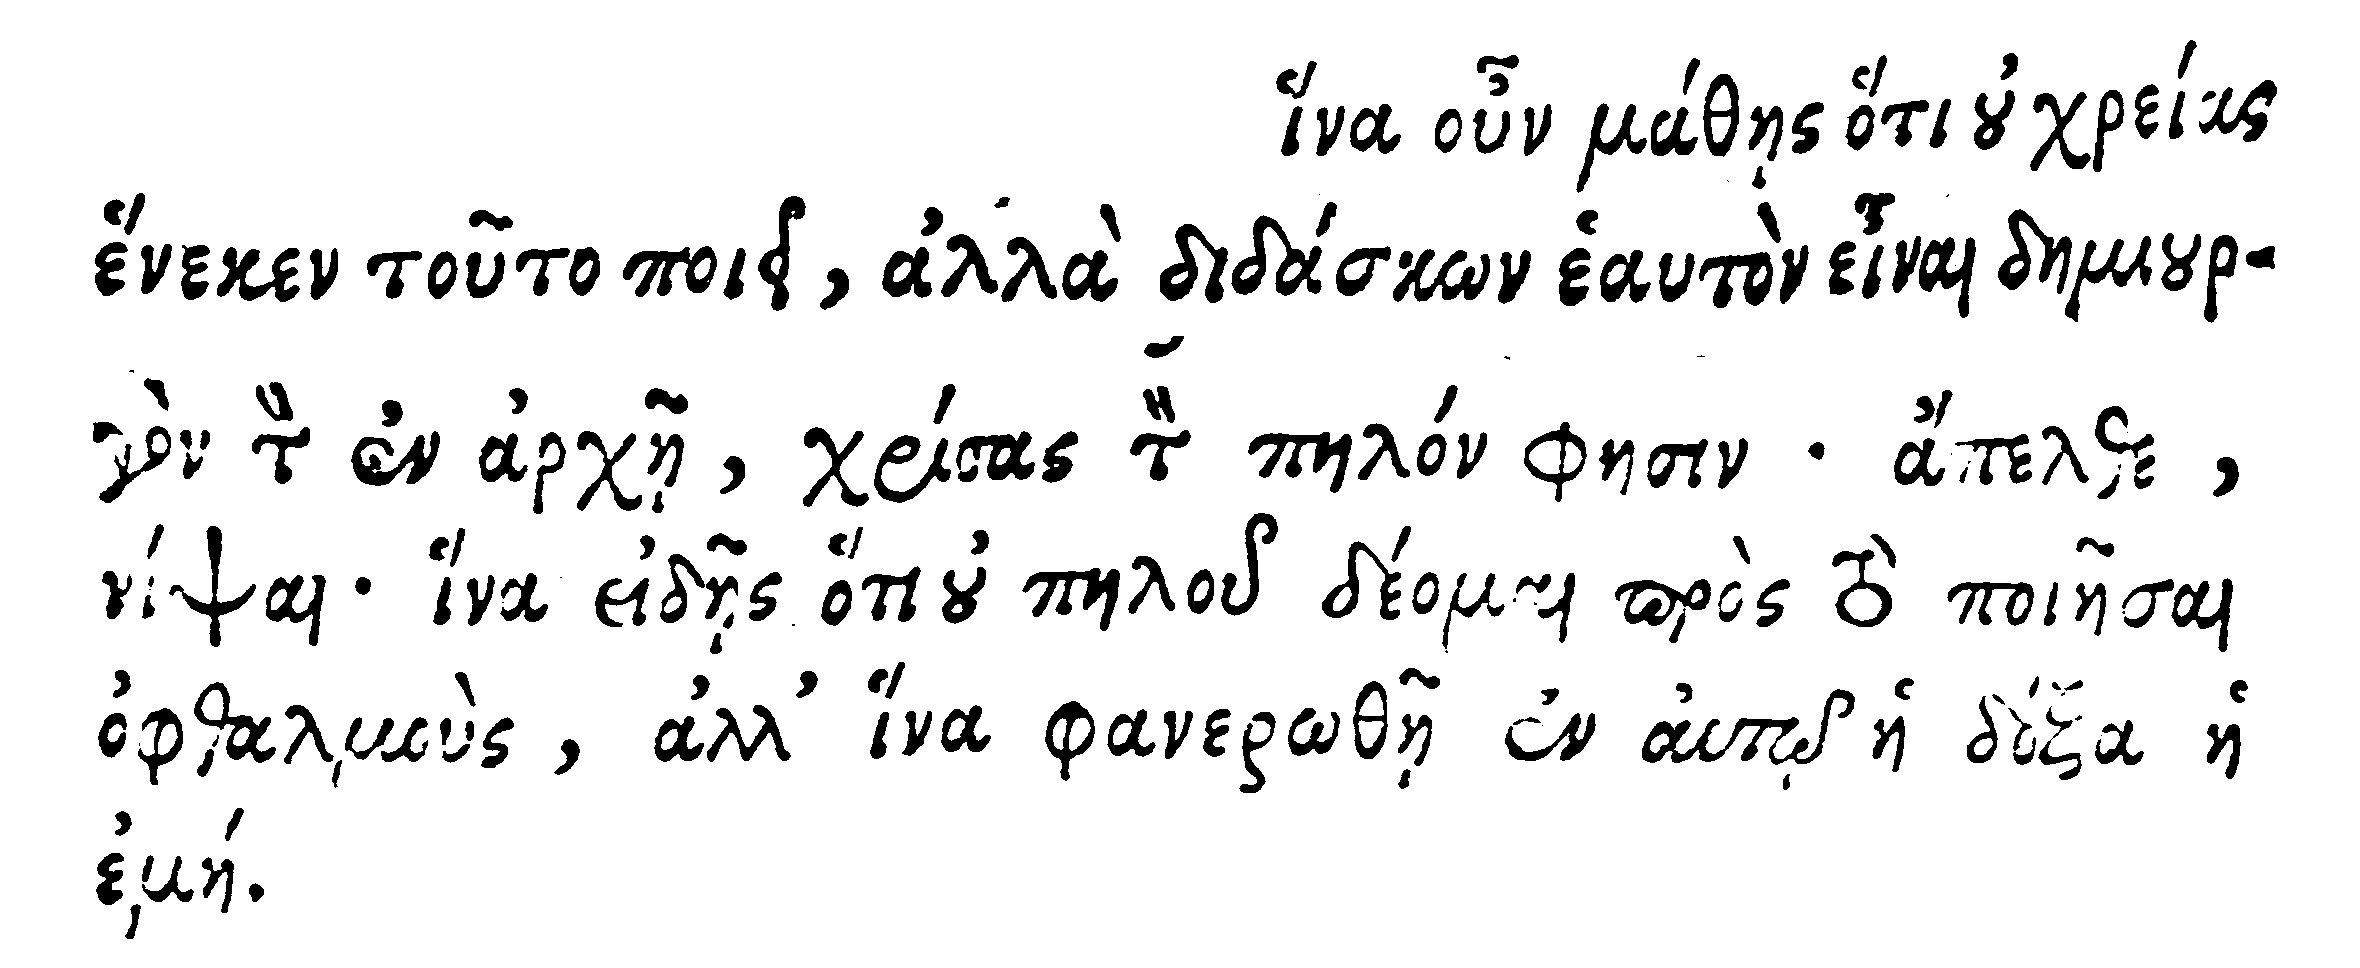 ἵνα οὖν μάθῃς ὅτι οὐ χρείας
ἕνεκεν τοῦτο ποιεῖ, ἀλλὰ διδάσκων ἑαυτὸν εἶναι δημιουρ-
γὸν τὸν ἐν ἀρχῇ, χρίσας τὸν πηλόν φησιν · ἄπελθε,
νίψαι · ἵνα εἰδῇς ὅτι οὐ πηλοῦ δέομαι πρὸς τὸ ποιῆσαι
ὀφθαλμοὺς, ἀλλ’ ἵνα φανερωθῇ ἐν ἀυτῷ ἡ δόξα ἡ
ἐμή.